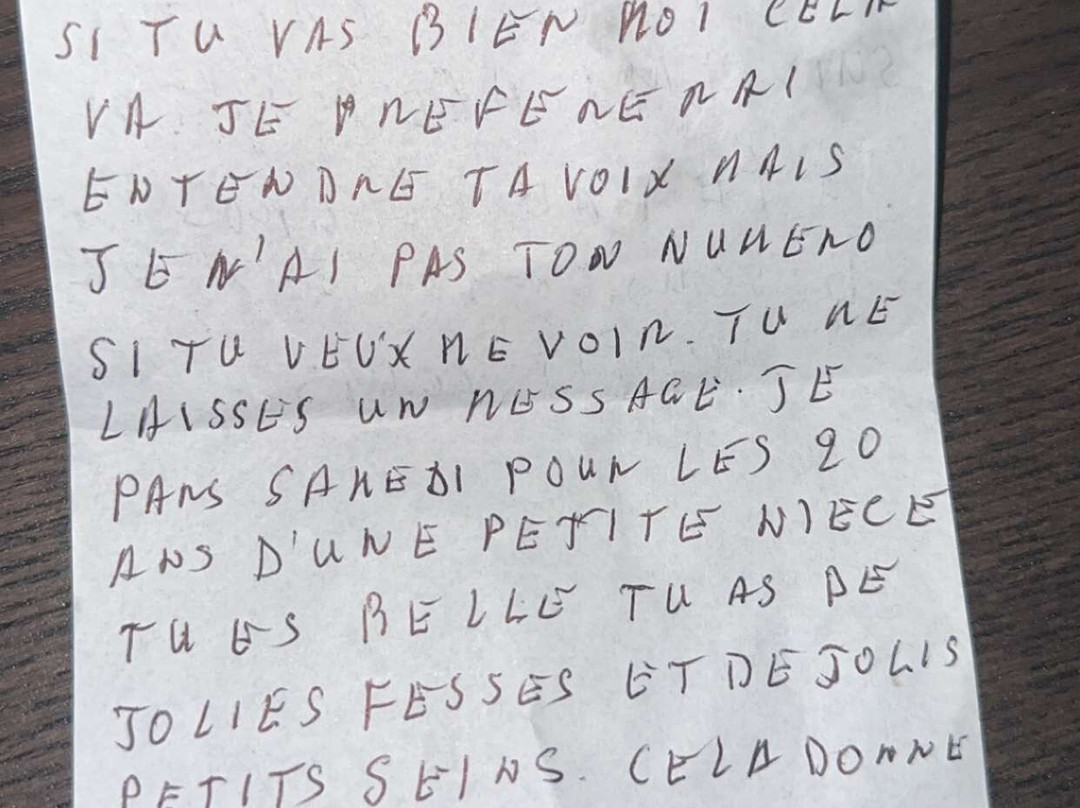 SI TU VAS BIEN MOI CELA
VA. JE PREFERERAI
ENTENDRE TA VOIX MAIS
JE N'AI PAS TON NUMERO
SI TU VEUX ME VOIR. TU ME
LAISSES UN MESSAGE. JE
PARS SAMEDI POUR LES 20
ANS D'UNE PETITE NIECE
TU ES BELLE TU AS DE
JOLIES FESSES ET DE JOLIS
PETITS SEINS. CELA DONNE